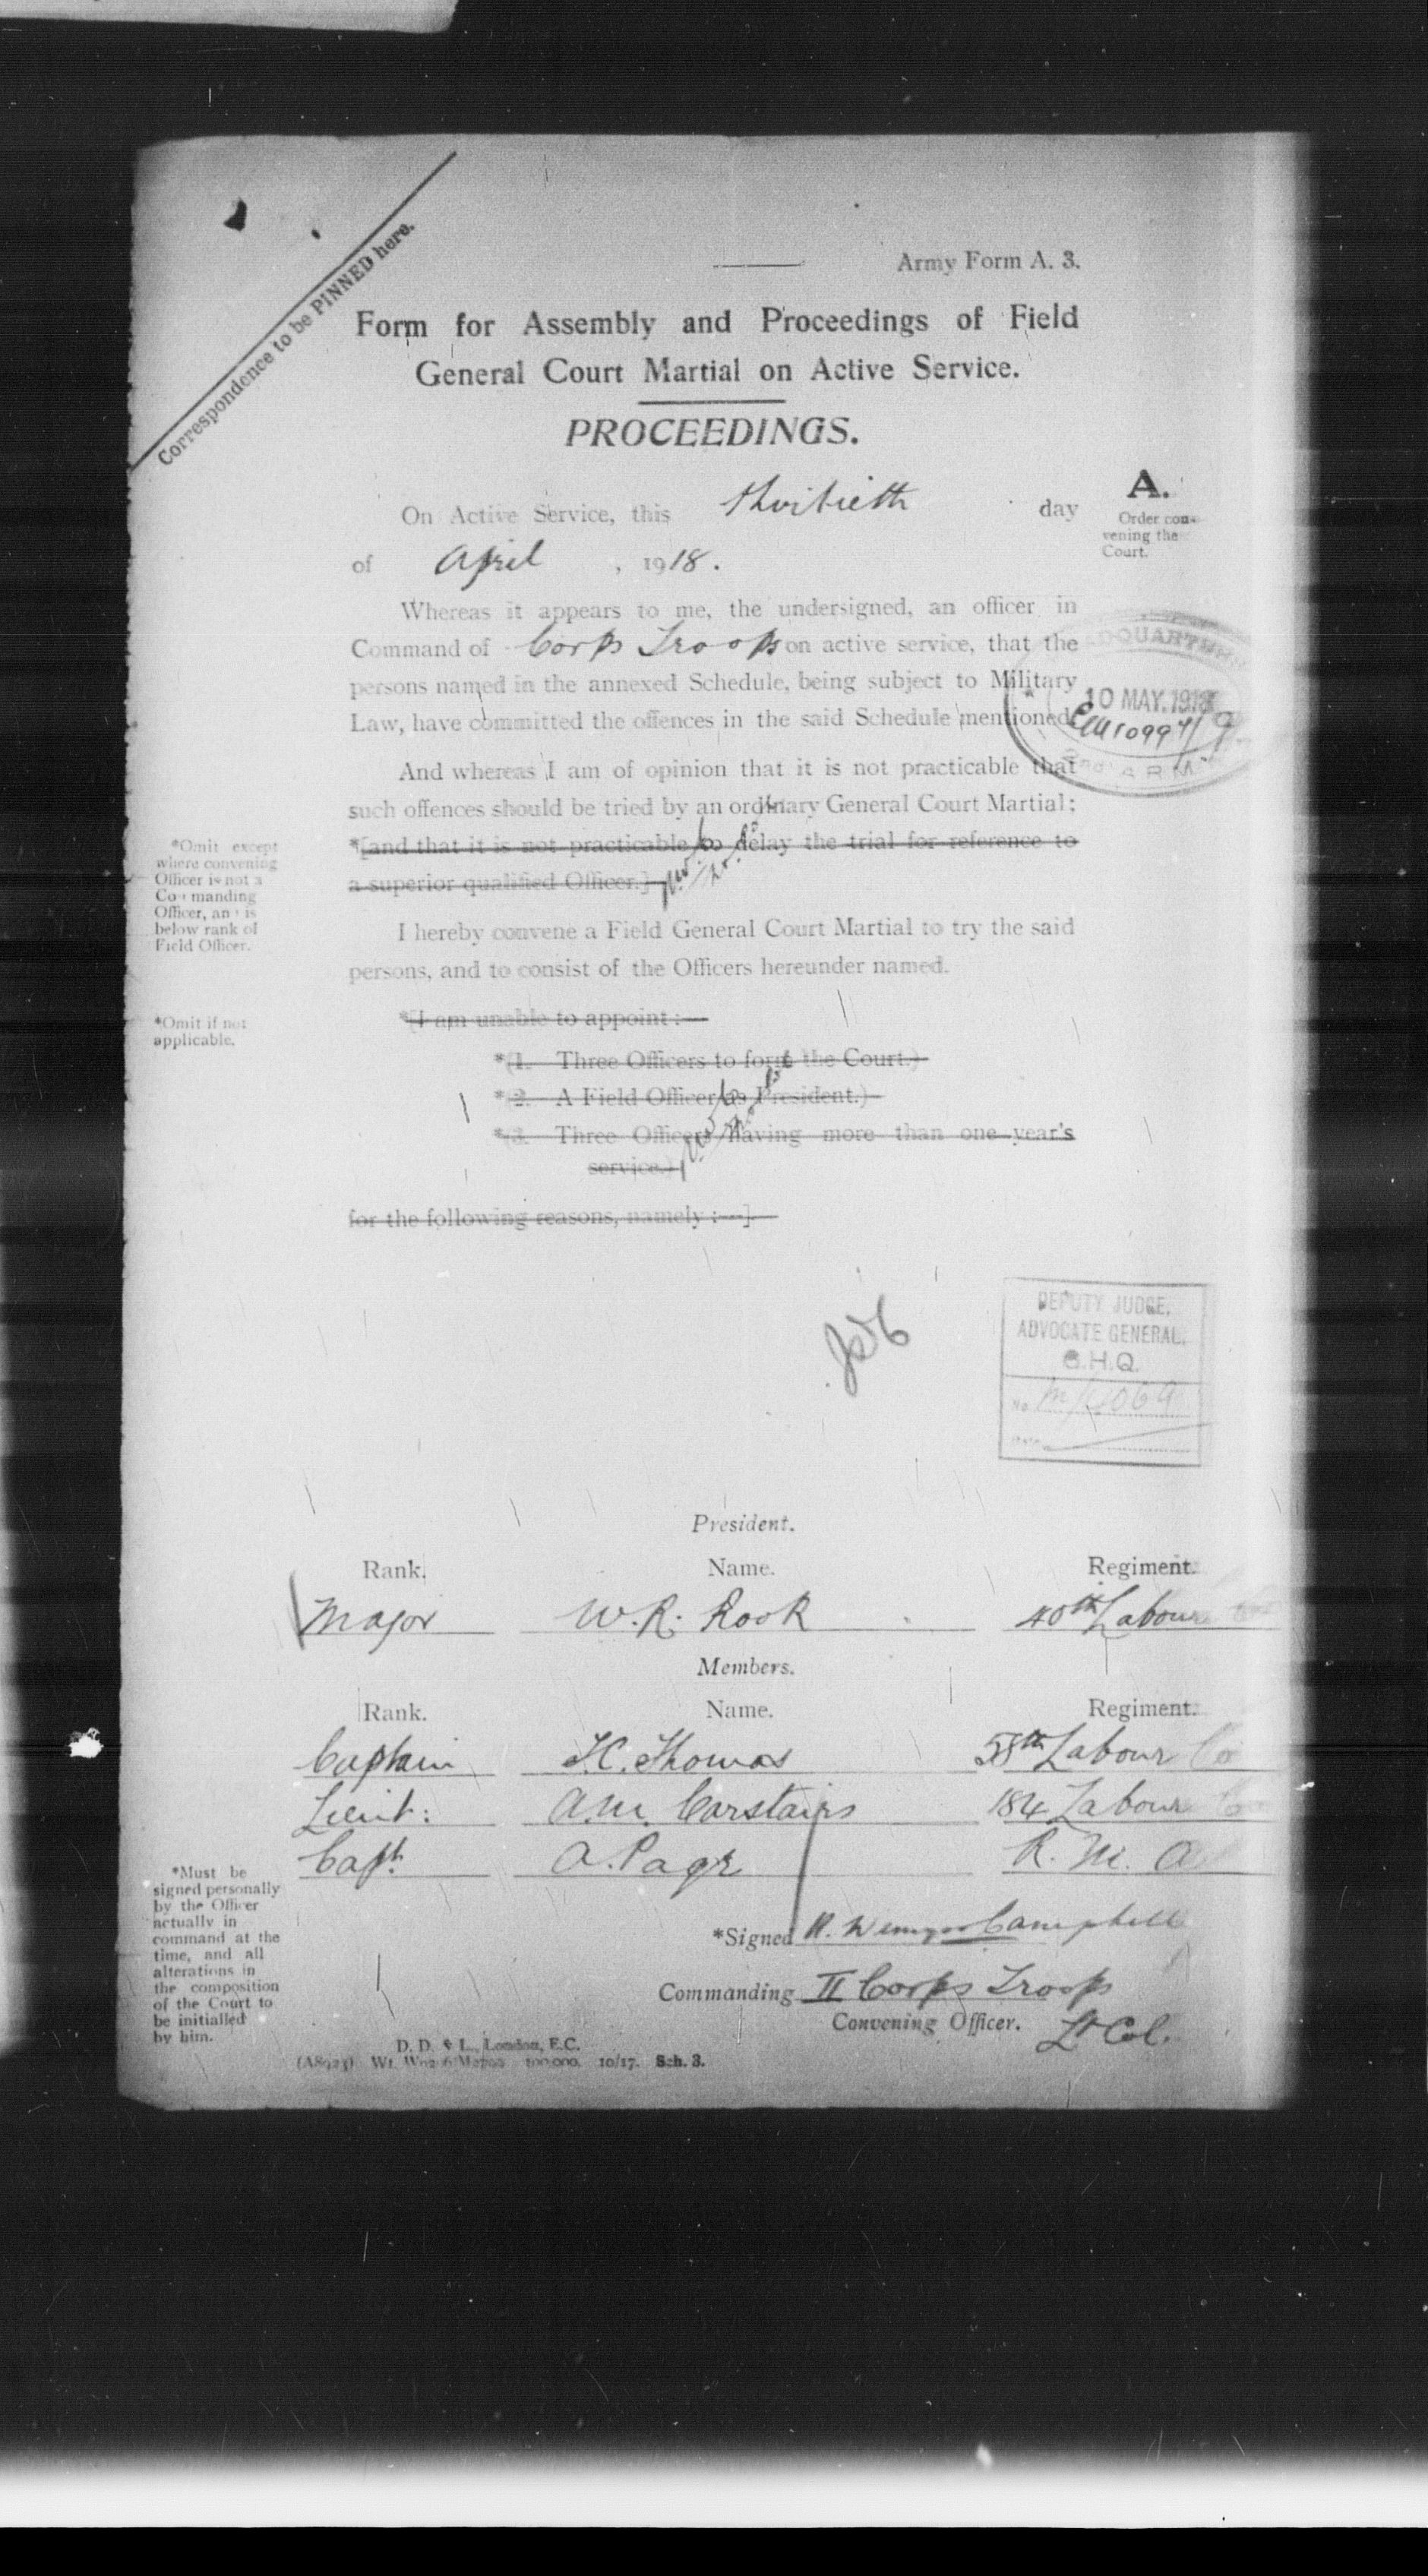 Correspondence to be PINNED here.
Army Form A. 3.
Form for Assembly and Proceedings of Field
General Court Martial on Active Service.
PROCEEDINGS.
On Active Service, this thirtieth day
of April , 1918.
A.
Order con-
vening the
Court.
Whereas it appears to me, the undersigned, an officer in
Command of Corps Troops on active service, that the
persons named in the annexed Schedule, being subject to Military
Law, have committed the offences in the said Schedule mentioned
10 MAY. 1918
ARMY
And whereas I am of opinion that it is not practicable that
such offences should be tried by an ordinary General Court Martial;
*[and that it is not practicable to delay the trial for reference to
a superior qualified Officer.]
*Omit except
where convening
Officer is not a
Commanding
Officer, and is
below rank of
Field Officer.
I hereby convene a Field General Court Martial to try the said
persons, and to consist of the Officers hereunder named.
*Omit if not
applicable.
*[I am unable to appoint:—
*(1. Three Officers to form the Court.)
*(2. A Field Officer as President.)
*(3. Three Officers having more than one year's
service.)
for the following reasons, namely :—]
DEPUTY JUDGE,
ADVOCATE GENERAL.
G.H.Q.
No.
Date
President.
Rank. Name. Regiment.
Major W.R. Rook 40th Labour
Members.
Rank. Name. Regiment.
Captain T.C. Thomas 58th Labour Co
Lieut: A.M. Carstairs 184 Labour Co
Capt. A. Page R. M. A
*Must be
signed personally
by the Officer
actually in
command at the
time, and all
alterations in
the composition
of the Court to
be initialled
by him.
*Signed R. Wemyss Campbell
Commanding II Corps Troops
Convening Officer. Lt Col.
D. D. & L., London, E.C.
100,000. 10/17. Sch. 3.